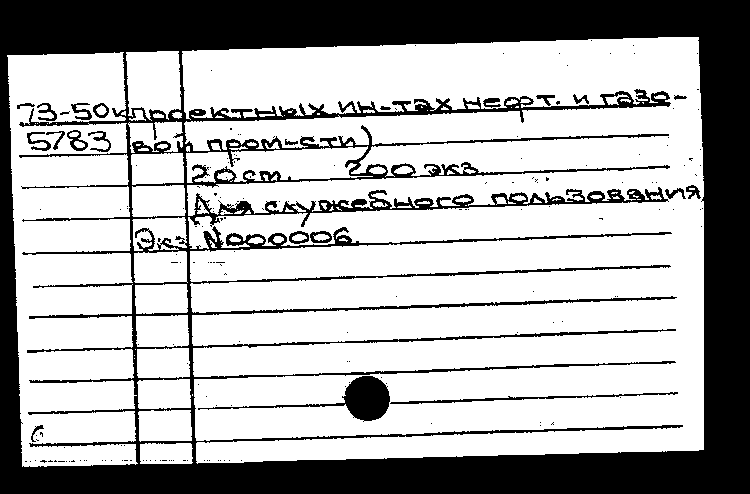 73-50к проектных ин-тах нефт. и газо-
5783 вой пром-сти)
20 ст. 200 экз.
Для служебного пользования
Экз. N000006.
6